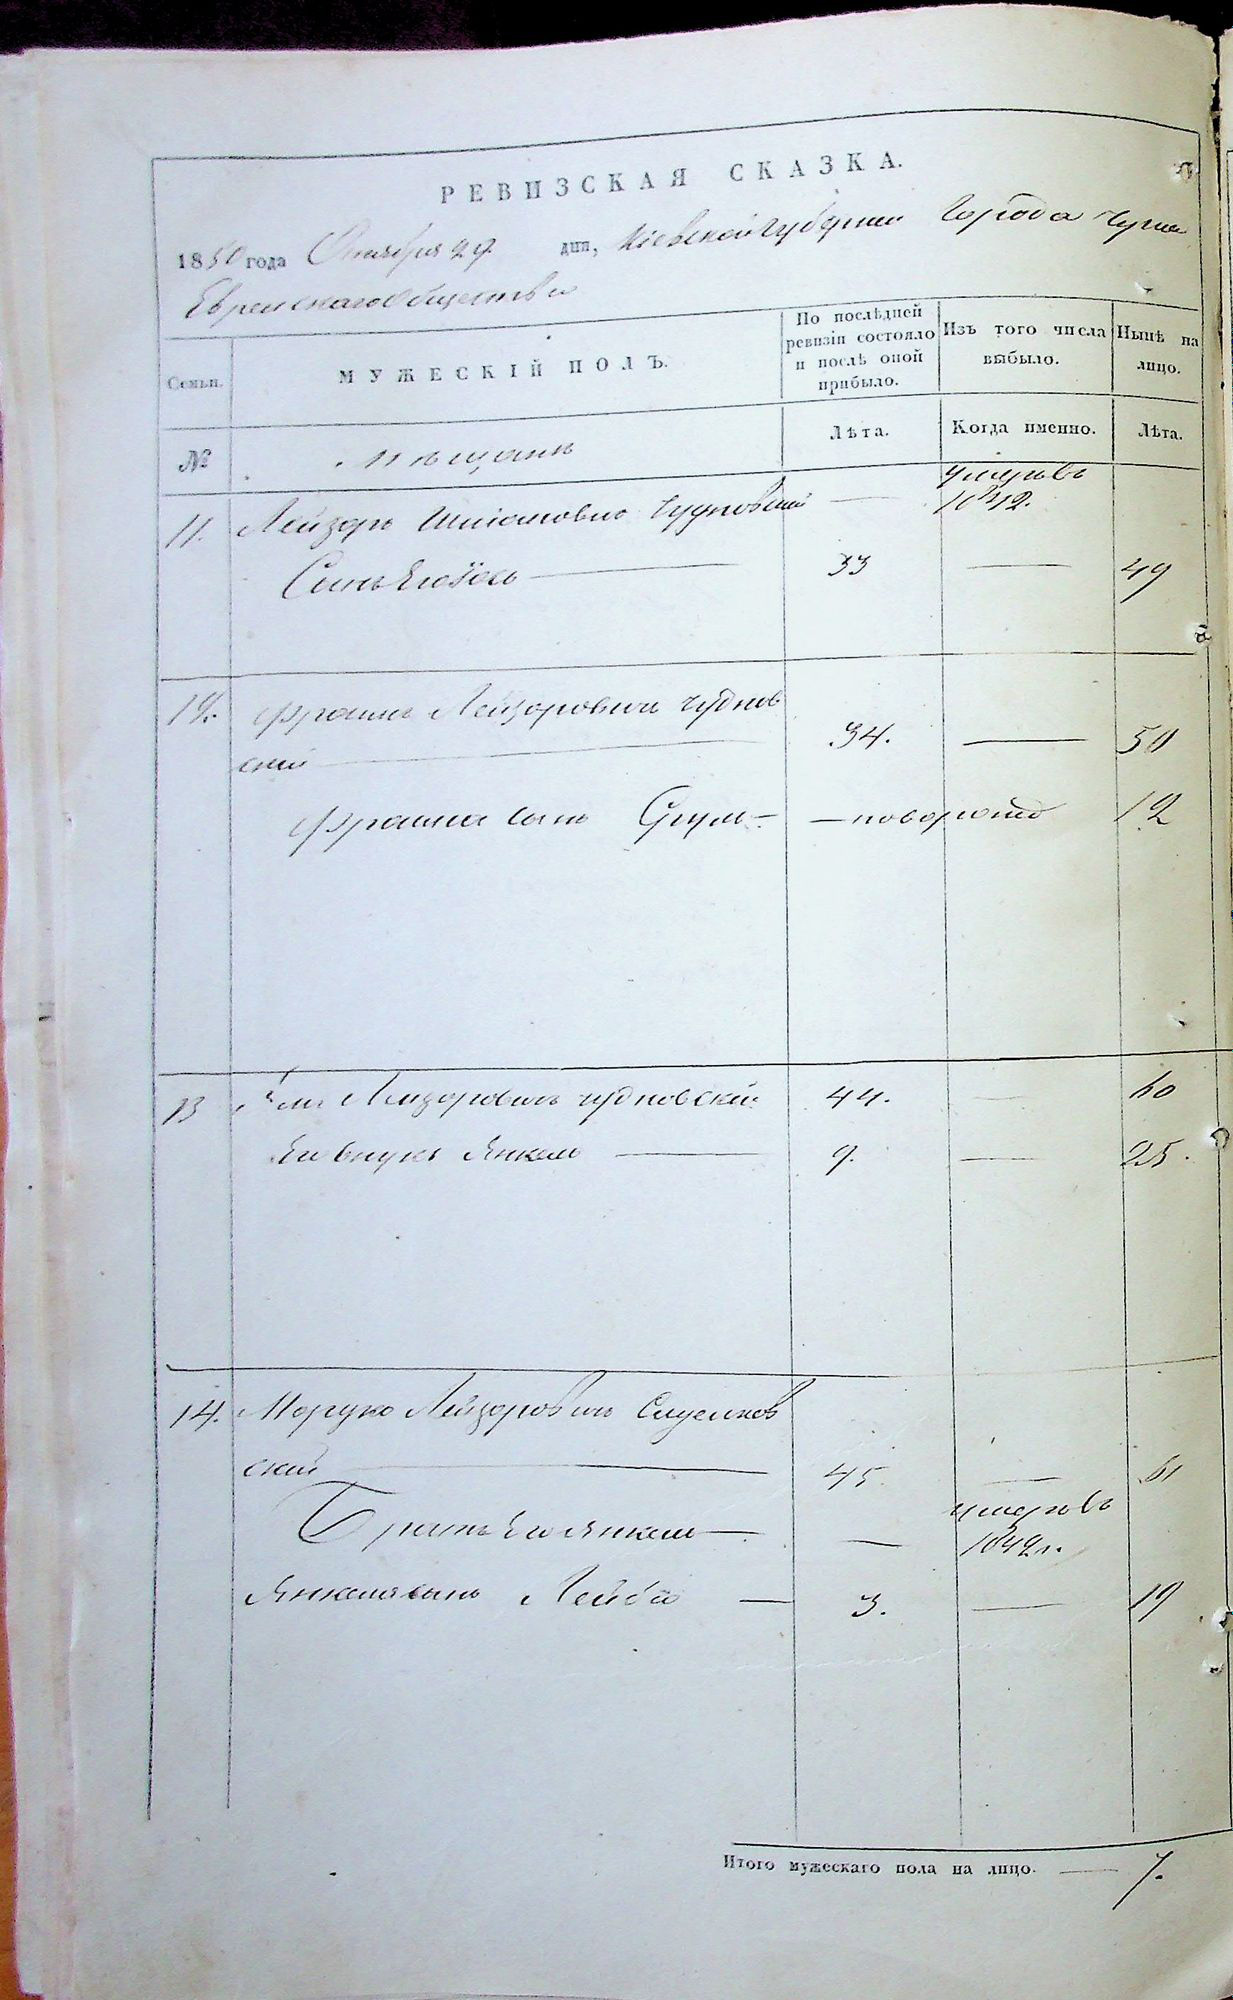 РЕВИЗСКАЯ СКАЗКА.
1850 года Октября 29 дня, Кіевской Губерніи Города
Еврейскаго Общества
Семьи.
МУЖЕСКІЙ ПОЛЪ.
По послѣдней ревизіи состояло и послѣ оной прибыло.
Изъ того числа выбыло.
Нынѣ на лицо.
№
Мѣщане
Лѣта.
Когда именно.
Лѣта.
11. Лейзоръ Чудновскій — умеръ въ 1842.
Сынъ Его — 33 — 49
12. Фроимъ Лейзоровичъ Чуднов
скій — 34. — 50
Фроима сынъ Сруль — новорожд 12
13 Лейзоровичъ Чудновскій 44. — 60
Его внукъ Янкель — 9. — 25.
14. Мордко Лейзоровичъ
скій — 45 — 61
Братъ Его Янкель — — умеръ въ 1842 г.
Янкеля сынъ Лейба — 3. — 19
Итого мужескаго пола на лицо. — 7.